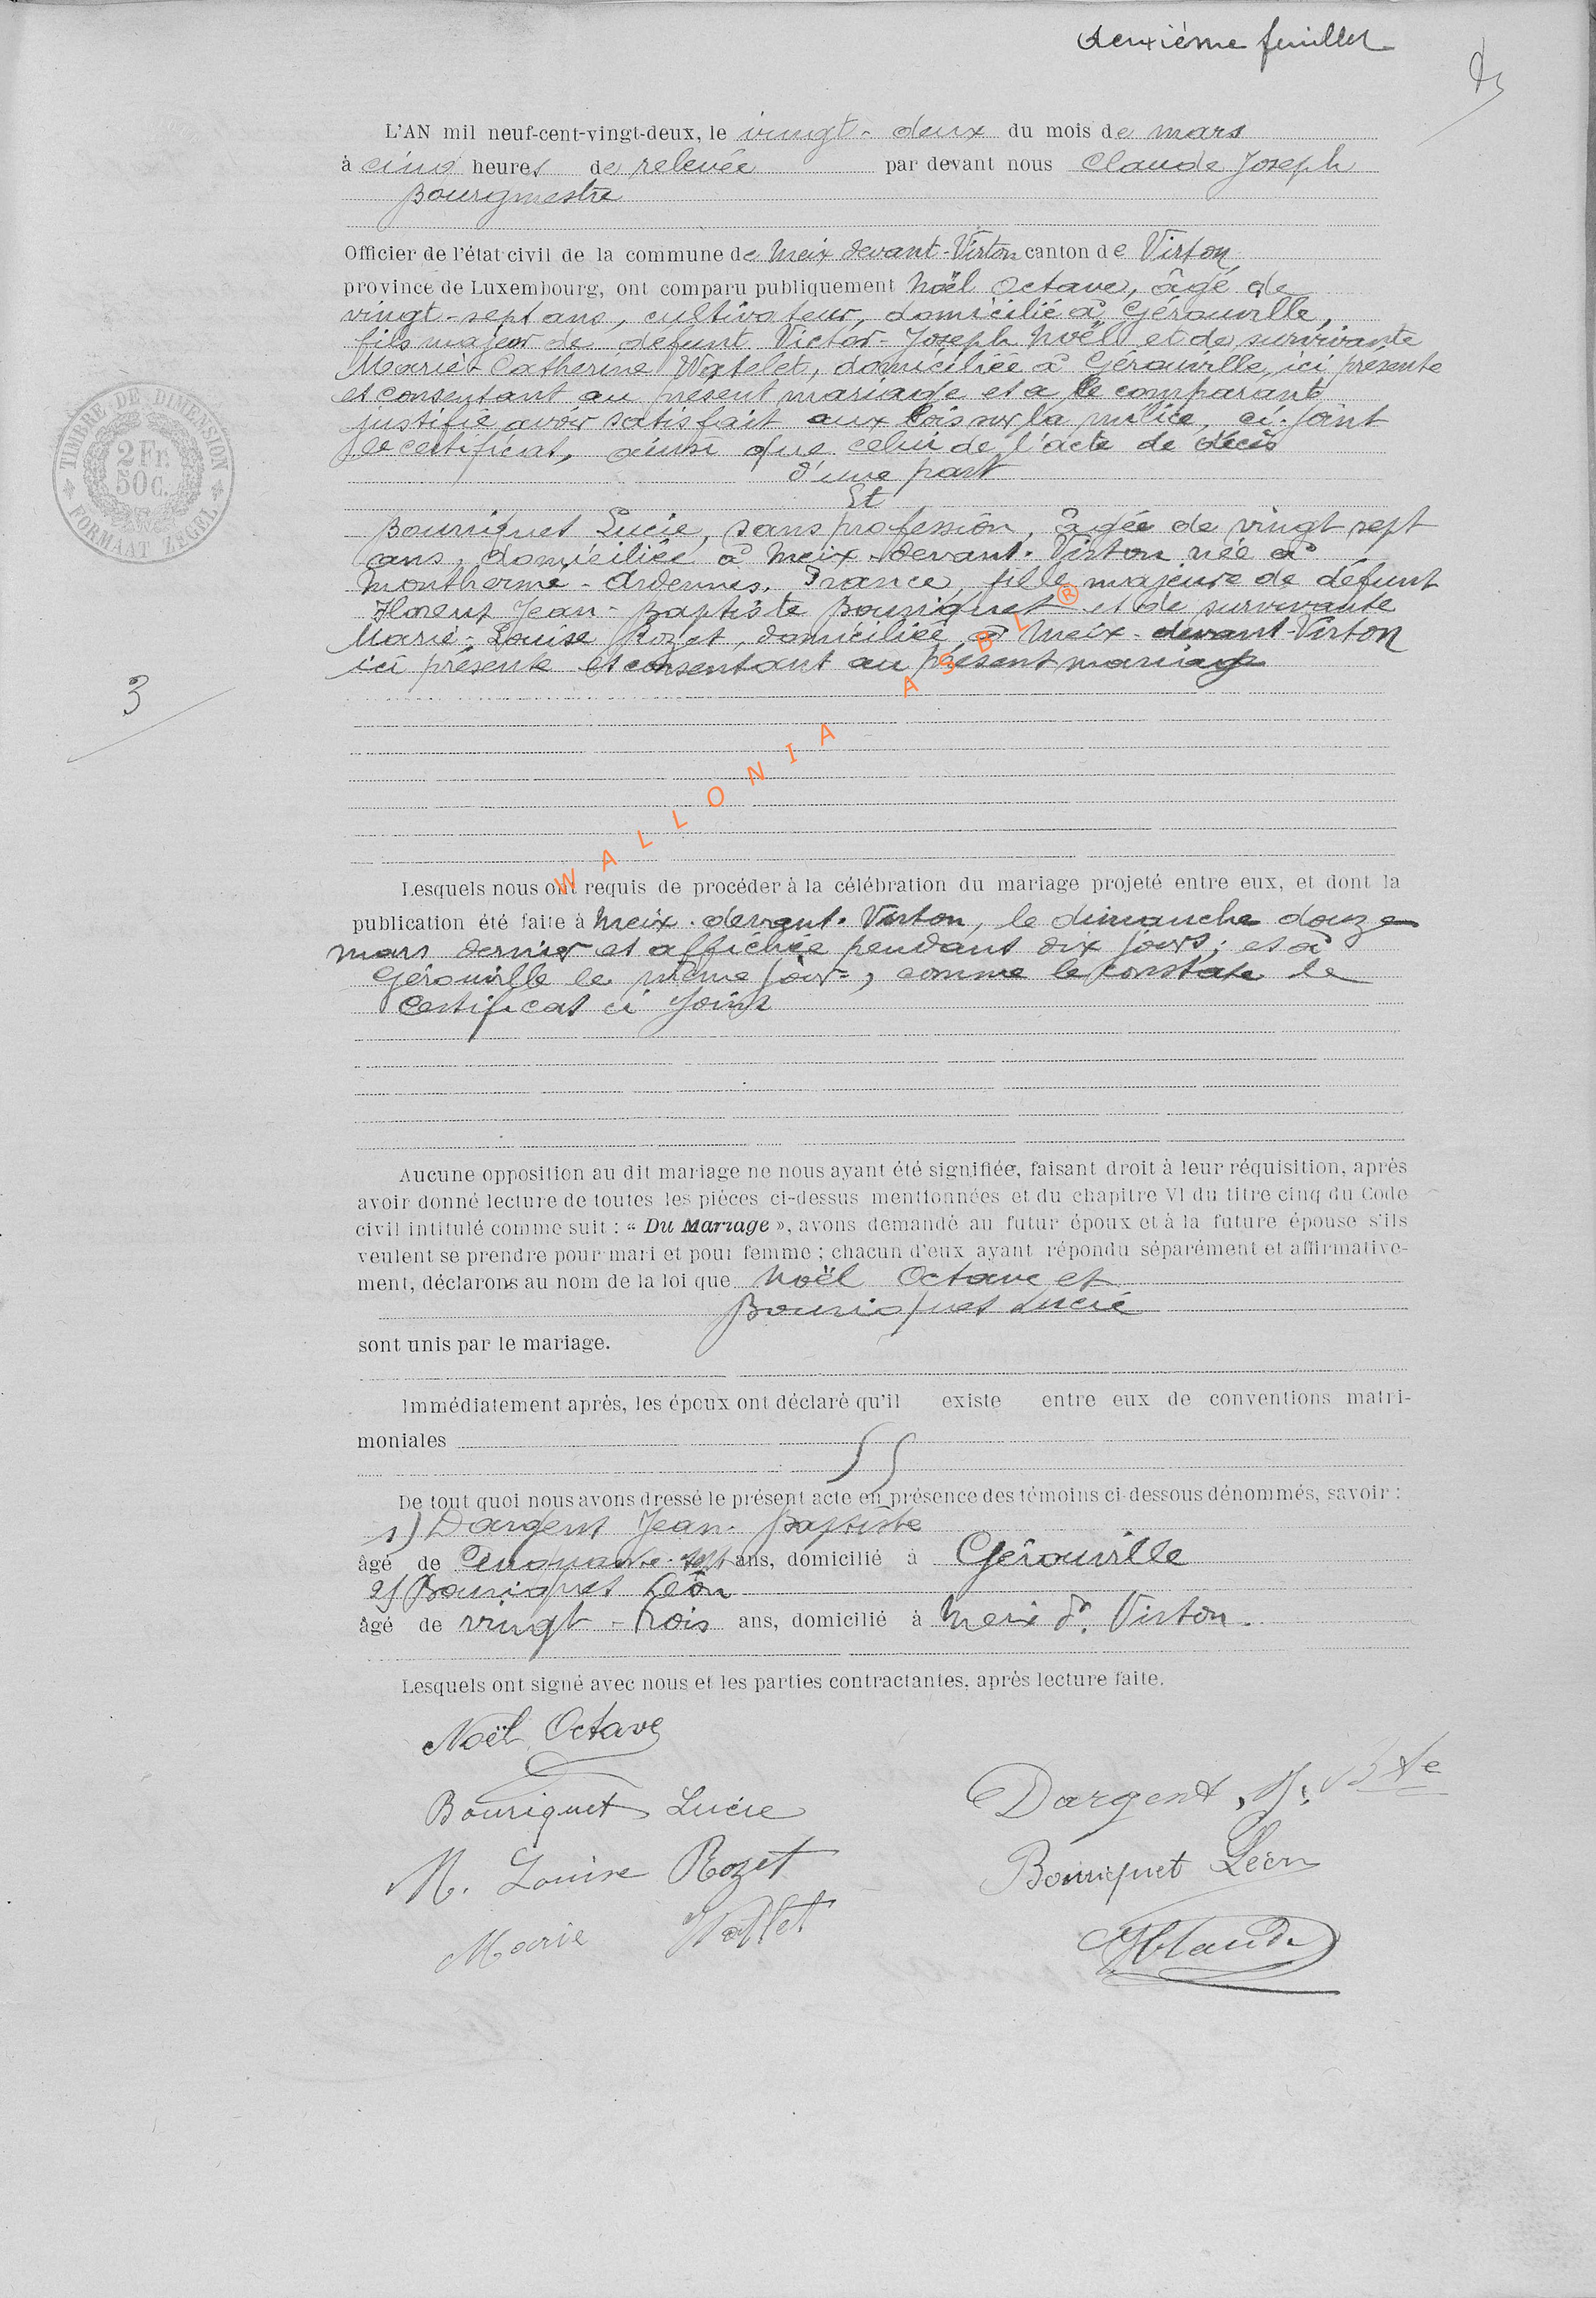 deuxième feuillet
L'AN mil neuf-cent-vingt-deux, le vingt-deux du mois de mars
à cinq heures de relevée par devant nous Claude Joseph
Bourgmestre
Officier de l'état civil de la commune de Meix devant-Virton canton de Virton
province de Luxembourg, ont comparu publiquement Noël Octave, âgé de
vingt-sept ans, cultivateur, domicilié à Gérouville,
fils majeur de défunt Victor-Joseph Noël et de survivante
Marie-Catherine Watelet, domiciliée à Gérouville, ici présente
et consentant au présent mariage et a le comparant
justifié avoir satisfait aux lois sur la milice, ci-joint
le certificat, ainsi que celui de l'acte de décès
d'une part
Et
Bouriquet Lucie, sans profession, âgée de vingt sept
ans, domiciliée à Meix-devant-Virton née à
Monthermé-Ardennes, France, fille majeure de défunt
Florent Jean-Baptiste Bouriquet et de survivante
Marie-Louise Rozet, domiciliée à Meix-devant-Virton
ici présente et consentant au présent mariage
3
WALLONIA ASBL ®
TIMBRE DE DIMENSION
2 Fr.
50 C.
FORMAAT ZEGEL
Lesquels nous ont requis de procéder à la célébration du mariage projeté entre eux, et dont la
publication été faite à Meix-devant-Virton, le dimanche douze
mars dernier et affichée pendant dix jours; et à
Gérouville le même jour, comme le constate le
certificat ci joint
Aucune opposition au dit mariage ne nous ayant été signifiée, faisant droit à leur réquisition, après
avoir donné lecture de toutes les pièces ci-dessus mentionnées et du chapitre VI du titre cinq du Code
civil intitulé comme suit : « Du Mariage », avons demandé au futur époux et à la future épouse s'ils
veulent se prendre pour mari et pour femme ; chacun d'eux ayant répondu séparément et affirmative-
ment, déclarons au nom de la loi que Noël Octave et
Bouriquet Lucie
sont unis par le mariage.
Immédiatement après, les époux ont déclaré qu'il existe entre eux de conventions matri-
moniales
De tout quoi nous avons dressé le présent acte en présence des témoins ci-dessous dénommés, savoir :
1) Dargent Jean-Baptiste
âgé de cinquante-sept ans, domicilié à Gérouville
2) Bouriquet Léon
âgé de vingt-trois ans, domicilié à Meix dt Virton.
Lesquels ont signé avec nous et les parties contractantes, après lecture faite.
Noël Octave
Bouriquet Lucie
Dargent, J. Bte
M. Louise Rozet
Bouriquet Léon
Marie Watlet
JClaude